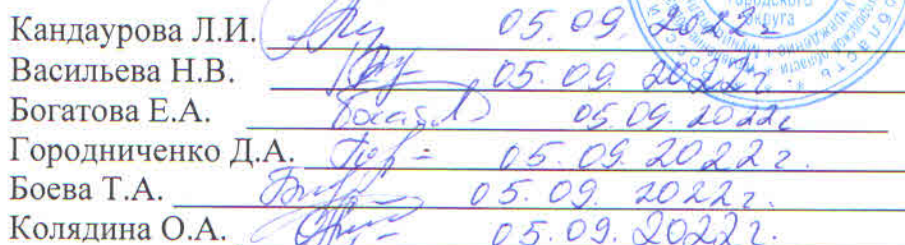 городского
округа
Кандаурова Л.И. 05.09.2022г
Васильева Н.В. 05.09.2022г.
Богатова Е.А. 05.09.2022г
Городниченко Д.А. 05.09.2022г.
Боева Т.А. 05.09.2022г.
Колядина О.А. 05.09.2022г.